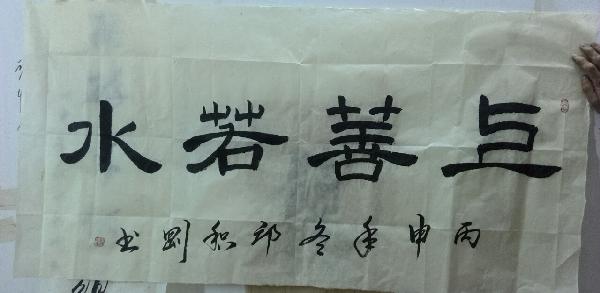 上善若水
丙申年冬邱和刚书